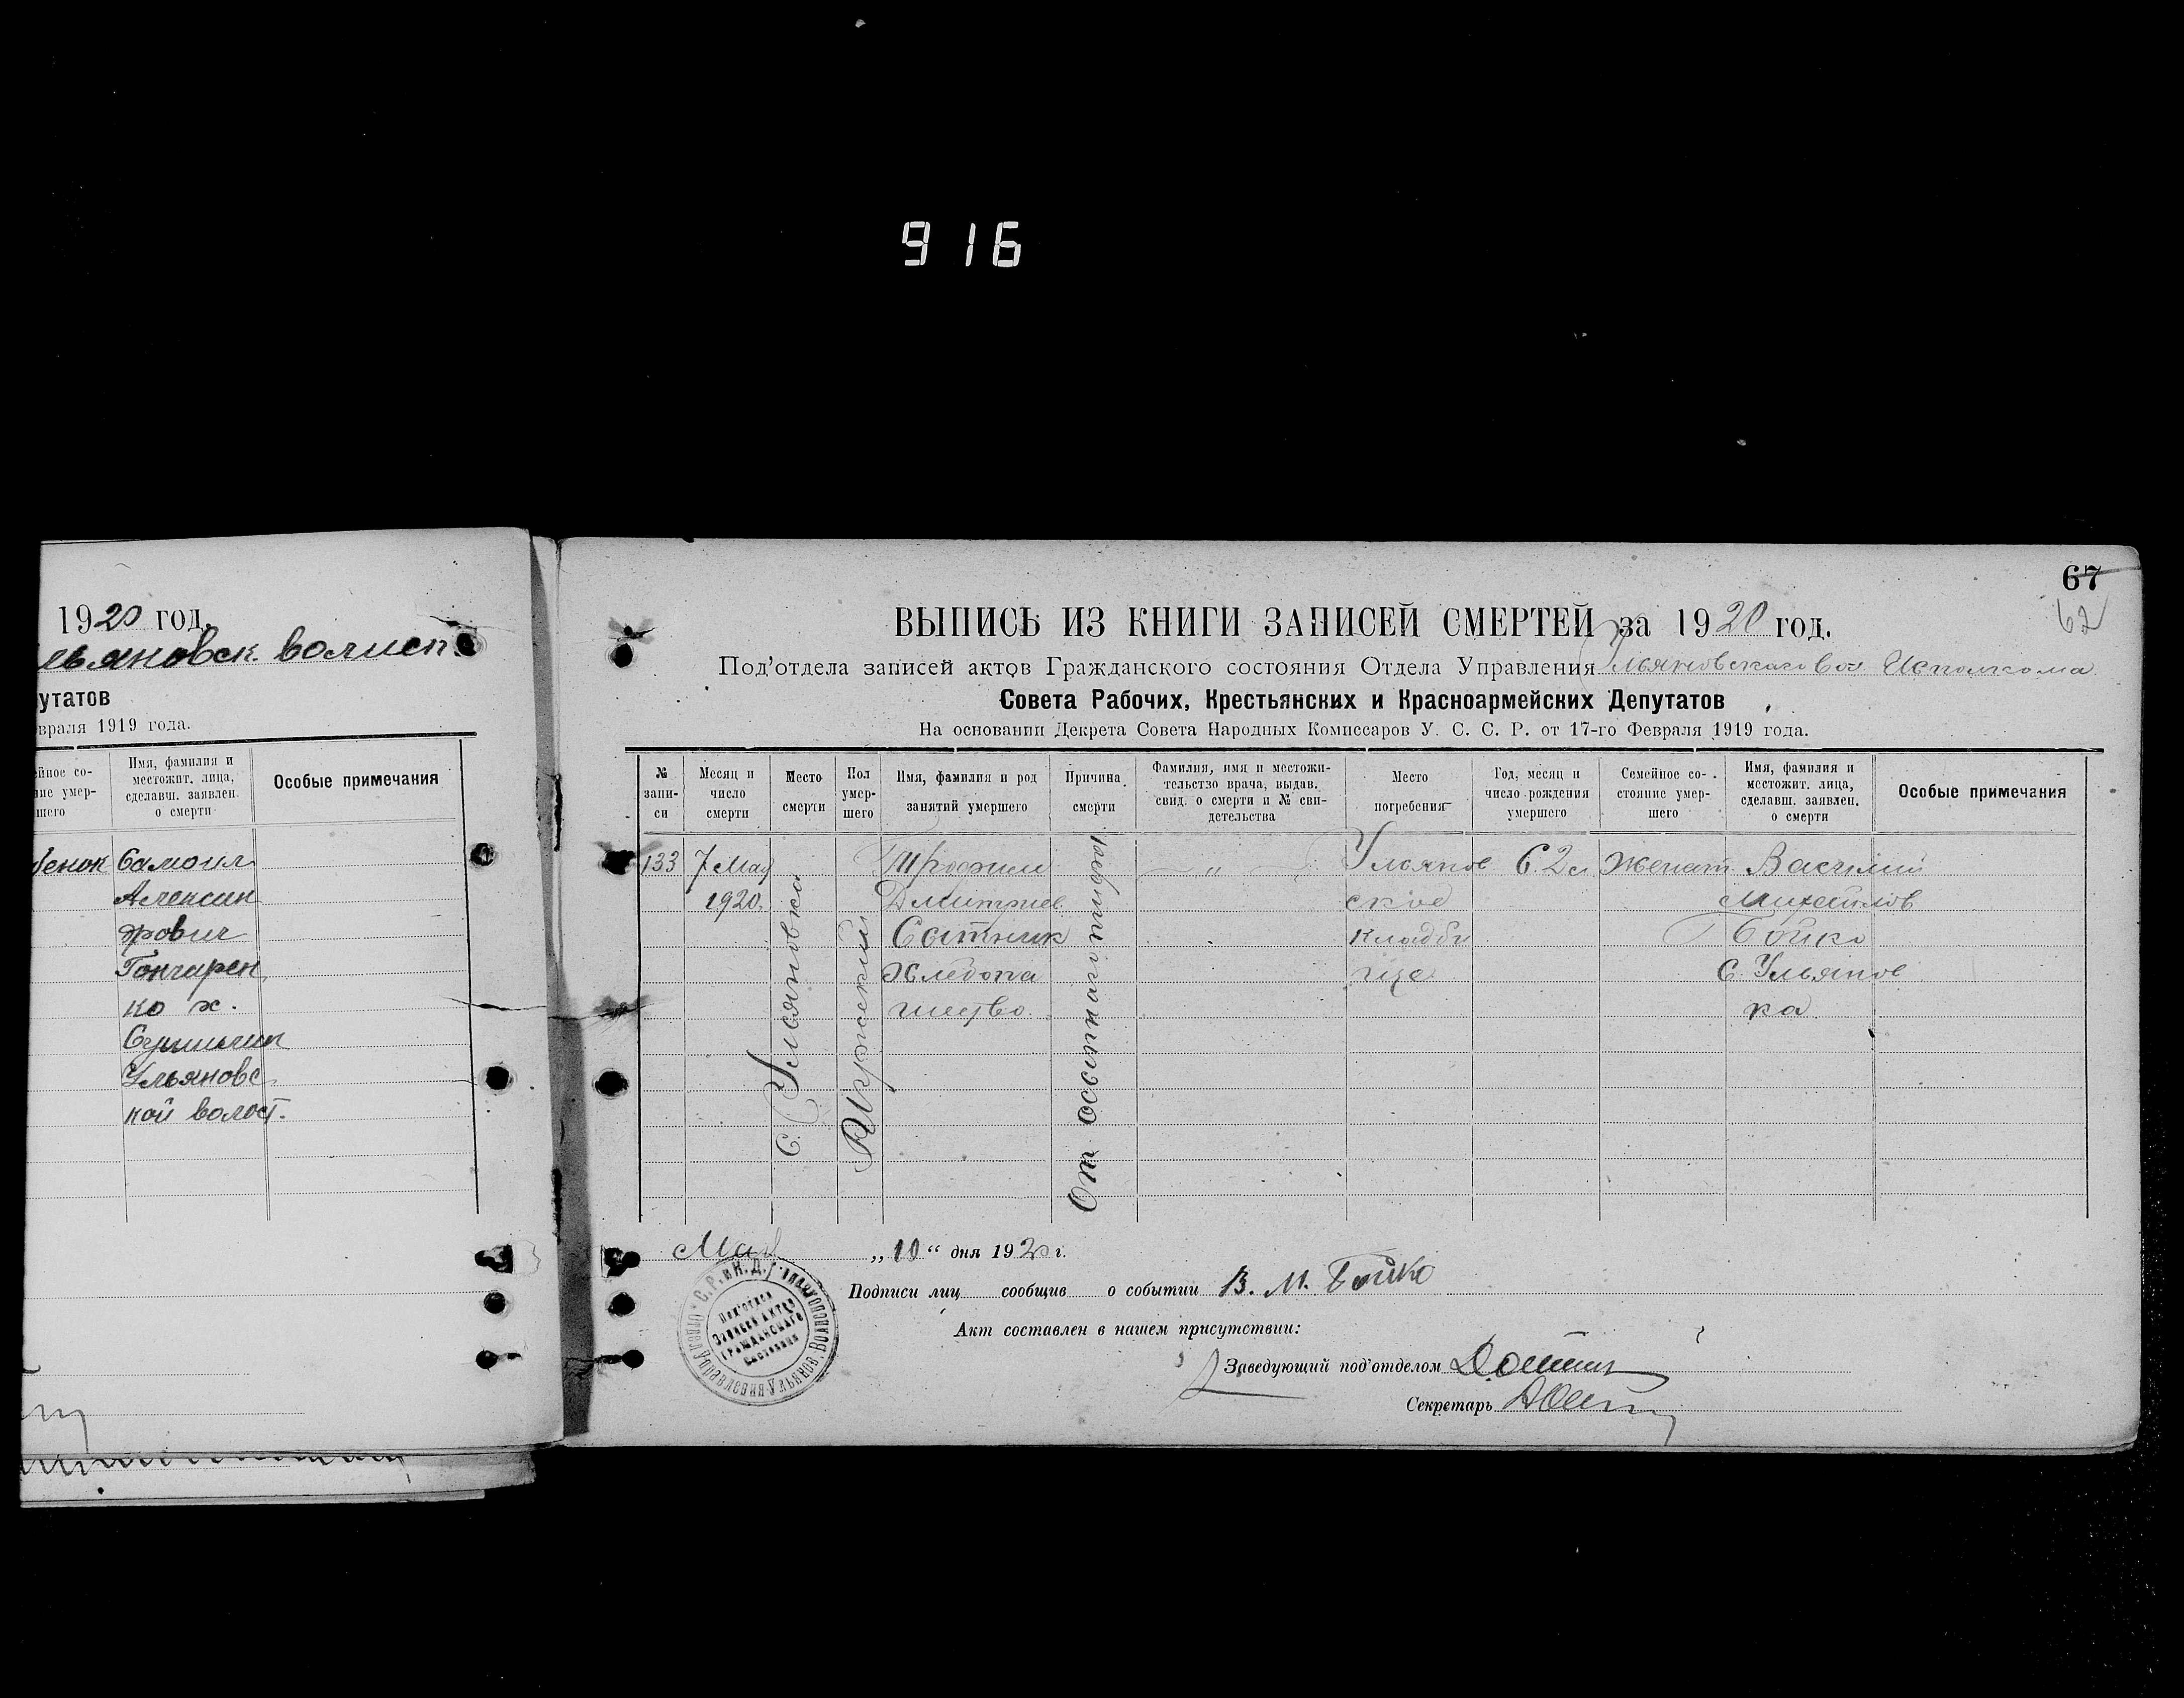 916
1920 год.
льяновск. волисп.
путатов
враля 1919 года.
йное со-
ние умер-
шего
Имя, фамилия и
местожит. лица,
сделавш. заявлен.
о смерти
Особые примечания
бенок Самоил
Алексан
дрович
Гончарен
ко х.
Ульяновс
кой волост.
67
62
ВЫПИСЬ ИЗ КНИГИ ЗАПИСЕЙ СМЕРТЕЙ за 1920 год.
Под'отдела записей актов Гражданского состояния Отдела Управления Ульяновского Вол Исполкома
Совета Рабочих, Крестьянских и Красноармейских Депутатов
На основании Декрета Совета Народных Комиссаров У. С. С. Р. от 17-го Февраля 1919 года.
№
запи-
си
Месяц и
число
смерти
Место
смерти
Пол
умер-
шего
Имя, фамилия и род
занятий умершего
Причина
смерти
Фамилия, имя и местожи-
тельстзо врача, выдав.
свид. о смерти и № сви-
детельства
Место
погребения
Год, месяц и
число рождения
умершего
Семейное со-
стояние умер-
шего
Имя, фамилия и
местожит. лица,
сделавш. заявлен.
о смерти
Особые примечания
133
7 Мая
1920.
С. Ульяновка
Мужеский
Трофим
Дмитриев
Сотник
Хлебопа
шество
От сыпного тифа
"
Ульянов
ское
кладби
ще
62 л
Женат
Василий
Михайлов
Бойко
С. Ульянов
ка
Мая „10“ дня 1920 г.
Подписи лиц сообщив о событии В. М. Бойко
Акт составлен в нашем присутствии:
Заведующий под'отделом
Секретарь
С.Р. и К.Д.
Отдел Управления Ульянов.
Под'отдел
Записей актов
Гражданского
состояния